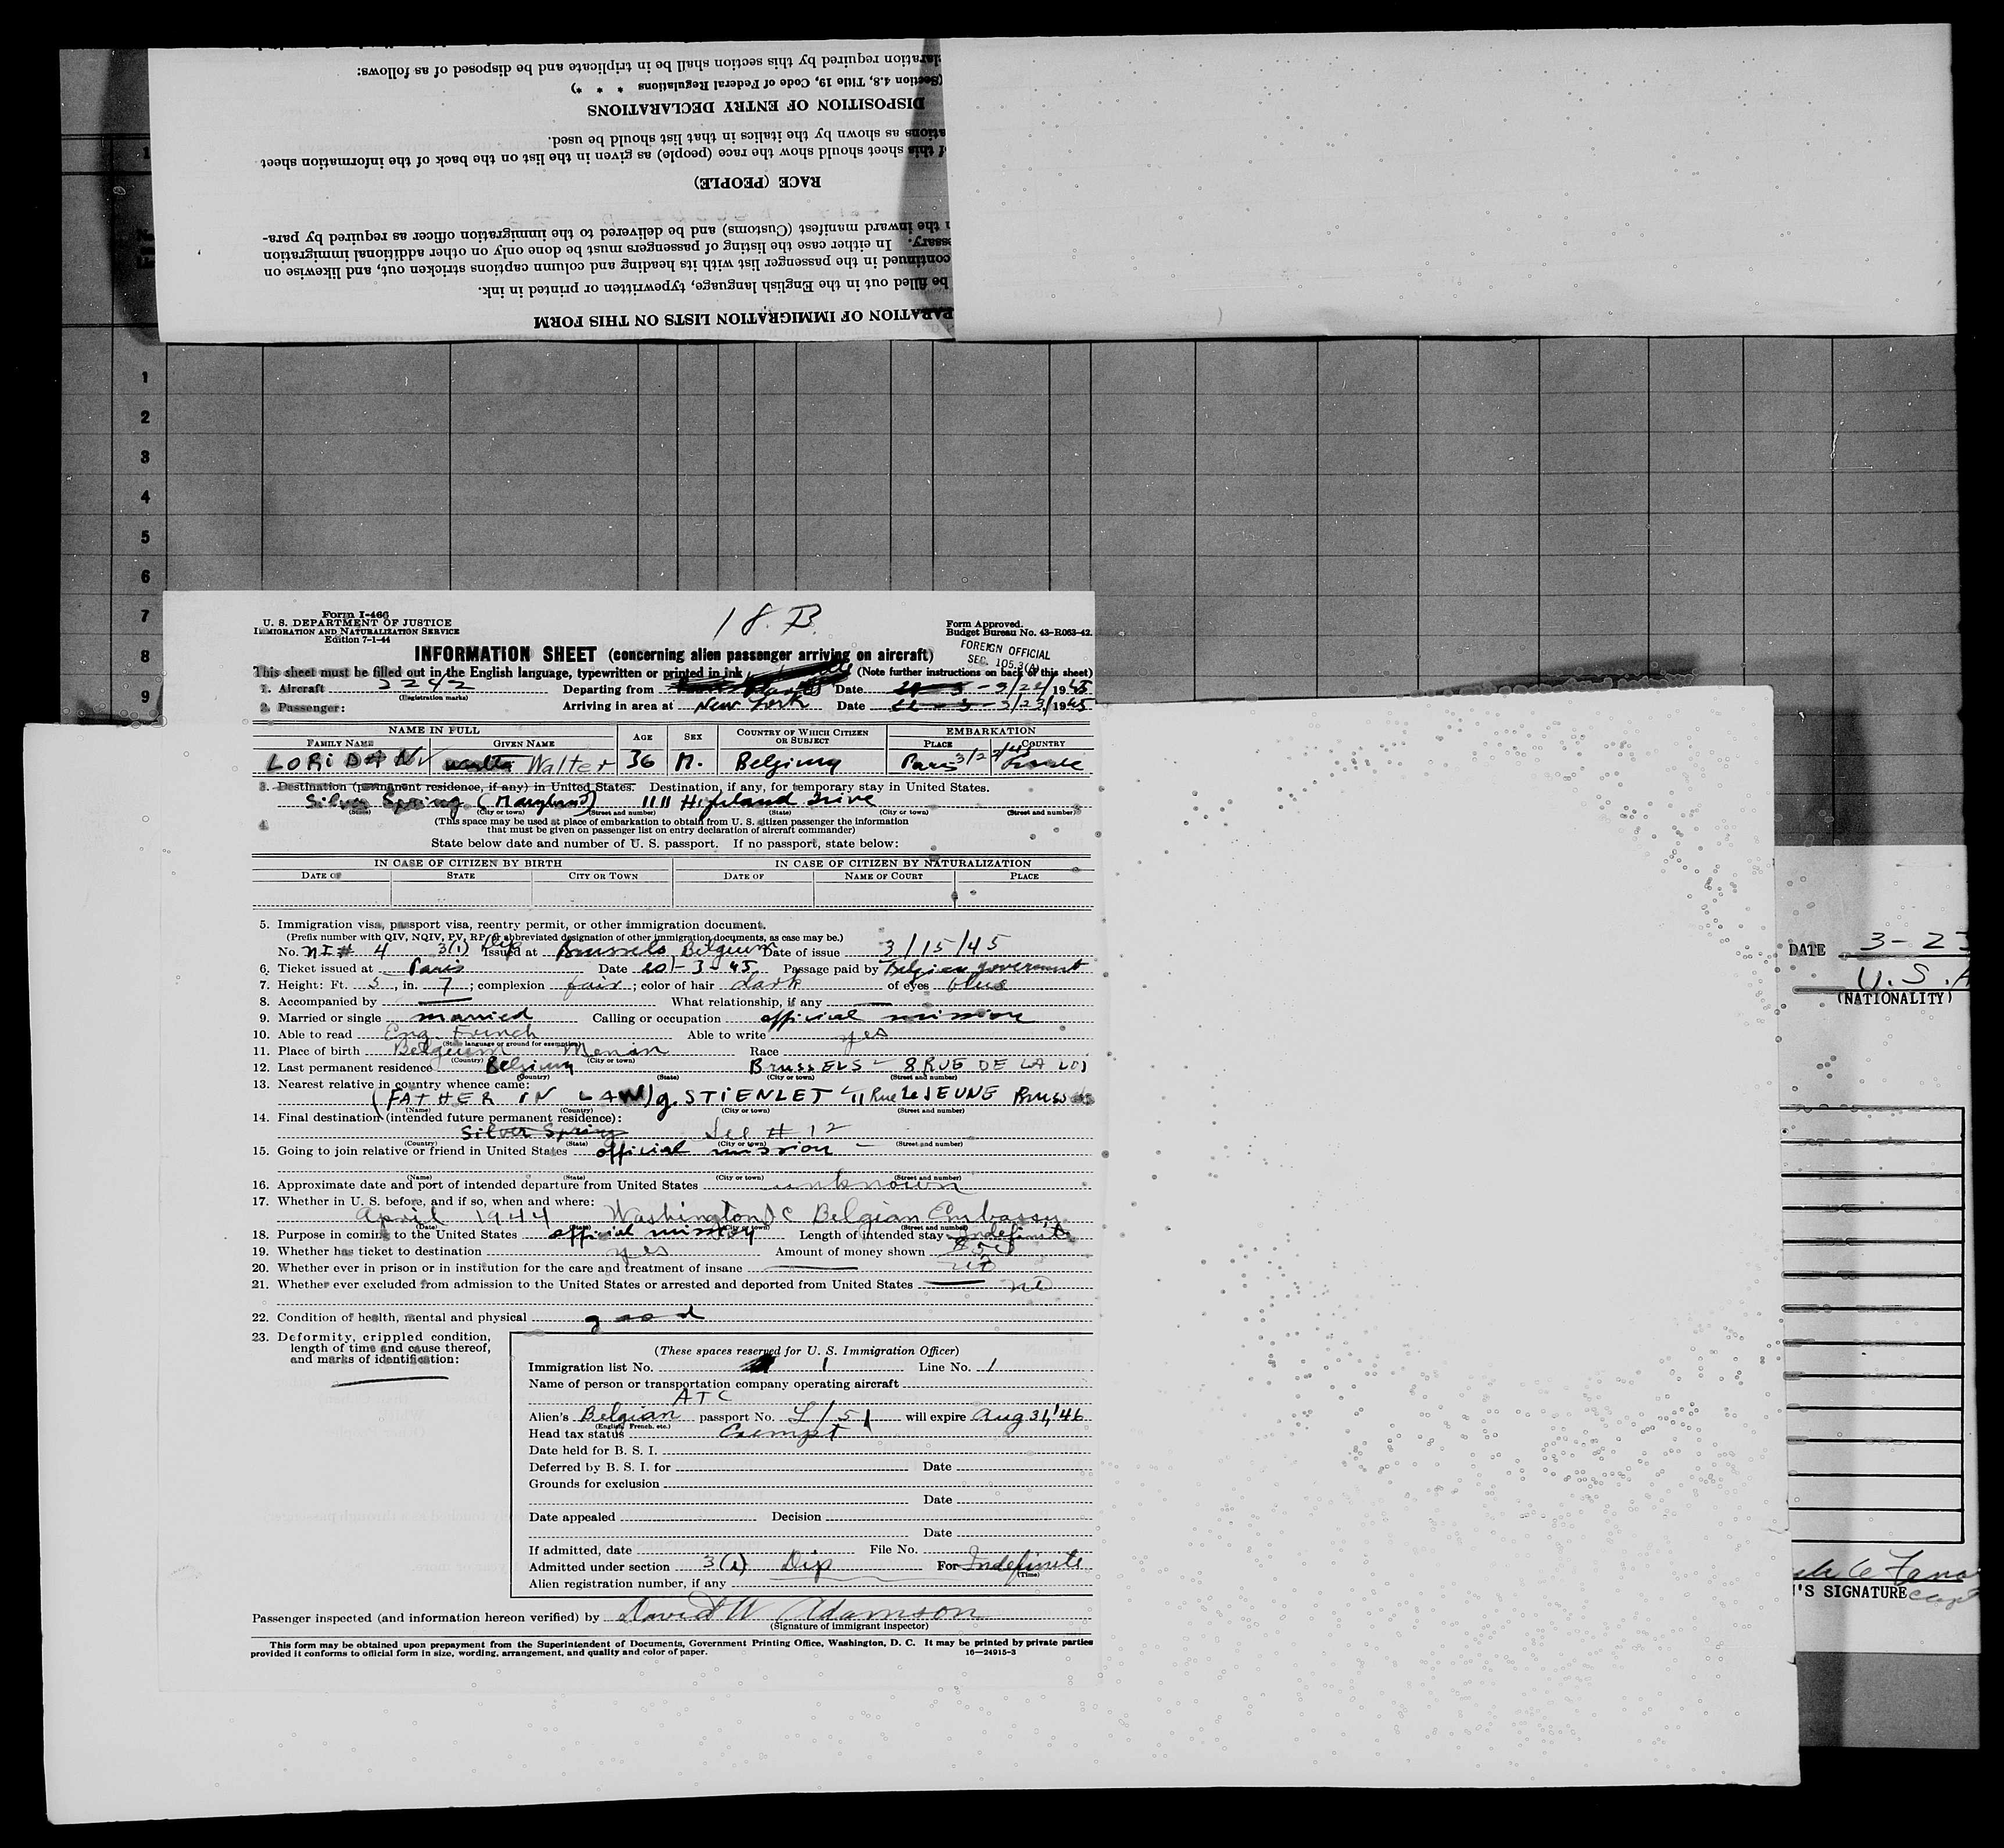 laration required by this section shall be in triplicate and be disposed of as follows:
(Section 4.8, Title 19, Code of Federal Regulations * * *)
DISPOSITION OF ENTRY DECLARATIONS
ations as shown by the italics in that list should be used.
of this sheet should show the race (people) as given in the list on the back of the information sheet
RACE (PEOPLE)
n the inward manifest (Customs) and be delivered to the immigration officer as required by para-
essary. In either case the listing of passengers must be done only on other additional immigration
continued in the passenger list with its heading and column captions stricken out, and likewise on
be filled out in the English language, typewritten or printed in ink.
PARATION OF IMMIGRATION LISTS ON THIS FORM
1
2
3
4
5
6
7
8
9
Form I-466
U. S. DEPARTMENT OF JUSTICE
IMMIGRATION AND NATURALIZATION SERVICE
Edition 7-1-44
18.B.
Form Approved.
Budget Bureau No. 43-R063-42.
INFORMATION SHEET (concerning alien passenger arriving on aircraft)
FOREIGN OFFICIAL
SEC. 105.3(A)
This sheet must be filled out in the English language, typewritten or printed in ink (Note further instructions on back of this sheet)
1. Aircraft (Registration marks) Departing from Date 3/22/1945
2. Passenger: Arriving in area at New York Date 3/23/1945
NAME IN FULL AGE SEX COUNTRY OF WHICH CITIZEN OR SUBJECT EMBARKATION
FAMILY NAME GIVEN NAME PLACE COUNTRY
Walter 36 M. Belgium Paris
3. Destination (permanent residence, if any) in United States. Destination, if any, for temporary stay in United States.
Silver Spring (Maryland) 1111 Highland Drive
(State) (City or town) (Street and number) (State) (City or town) (Street and number)
4. (This space may be used at place of embarkation to obtain from U. S. citizen passenger the information
that must be given on passenger list on entry declaration of aircraft commander)
State below date and number of U. S. passport. If no passport, state below:
IN CASE OF CITIZEN BY BIRTH IN CASE OF CITIZEN BY NATURALIZATION
DATE OF STATE CITY OR TOWN DATE OF NAME OF COURT PLACE
5. Immigration visa, passport visa, reentry permit, or other immigration document.
(Prefix number with QIV, NQIV, PV, RP or abbreviated designation of other immigration documents, as case may be.)
No. NI # 4 3(1) Dip Issued at Brussels Belgium Date of issue 3/15/45
6. Ticket issued at Paris Date 20-3-45 Passage paid by Belgian government
7. Height: Ft. 5, in. 7; complexion fair; color of hair dark of eyes blue
8. Accompanied by What relationship, if any
9. Married or single married Calling or occupation official mission
10. Able to read Eng French Able to write yes
(State language or ground for exemption)
11. Place of birth Belgium Menin Race
(Country) (City or town)
12. Last permanent residence Belgium BRUSSELS - 8 RUE DE LA LOI
(Country) (State) (City or town) (Street and number)
13. Nearest relative in country whence came:
(FATHER IN LAW) g. STIENLET 411 Rue LEJEUNE
(Name) (Country) (City or town) (Street and number)
14. Final destination (intended future permanent residence):
Silver Spring See # 12
(Country) (State) (City or town) (Street and number)
15. Going to join relative or friend in United States official mission
(Name) (State) (City or town) (Street and number)
16. Approximate date and port of intended departure from United States unknown
17. Whether in U. S. before, and if so, when and where:
April 1944 Washington DC Belgian Embassy
(Date) (State) (City or town) (Street and number)
18. Purpose in coming to the United States official mission Length of intended stay Indefinite
19. Whether has ticket to destination yes Amount of money shown
20. Whether ever in prison or in institution for the care and treatment of insane no
21. Whether ever excluded from admission to the United States or arrested and deported from United States no
22. Condition of health, mental and physical good
23. Deformity, crippled condition,
length of time and cause thereof,
and marks of identification:
(These spaces reserved for U. S. Immigration Officer)
Immigration list No. 1 Line No. 1
Name of person or transportation company operating aircraft
ATC
Alien's Belgian passport No. will expire Aug 31, '46
(English, French, etc.)
Head tax status Exempt
Date held for B. S. I.
Deferred by B. S. I. for Date
Grounds for exclusion
Date
Date appealed Decision
Date
If admitted, date File No.
Admitted under section 3(1) Dip For Indefinite
(Time)
Alien registration number, if any
Passenger inspected (and information hereon verified) by David W Adamson
(Signature of immigrant inspector)
This form may be obtained upon prepayment from the Superintendent of Documents, Government Printing Office, Washington, D. C. It may be printed by private parties
provided it conforms to official form in size, wording, arrangement, and quality and color of paper. 16—24915-3
DATE 3-23
U.S.A
(NATIONALITY)
'S SIGNATURE